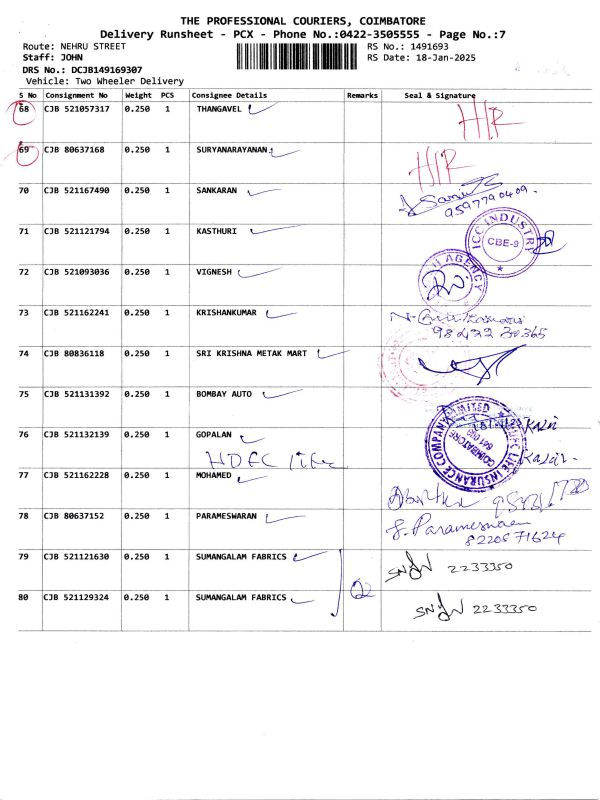 THE PROFESSIONAL COURIERS, COIMBATORE
Delivery Runsheet - PCX - Phone No.:0422-3505555 - Page No.:7
Route: NEHRU STREET RS No.: 1491693
Staff: JOHN RS Date: 18-Jan-2025
DRS No.: DCJB149169307
Vehicle: Two Wheeler Delivery
S No Consignment No Weight PCS Consignee Details Remarks Seal & Signature
68 CJB 521057317 0.250 1 THANGAVEL
69 CJB 80637168 0.250 1 SURYANARAYANAN.
70 CJB 521167490 0.250 1 SANKARAN
9597790409.
71 CJB 521121794 0.250 1 KASTHURI ICC INDUSTRY CBE-9
72 CJB 521093036 0.250 1 VIGNESH AGENCY
73 CJB 521162241 0.250 1 KRISHANKUMAR
98432 30365
74 CJB 80836118 0.250 1 SRI KRISHNA METAK MART
75 CJB 521131392 0.250 1 BOMBAY AUTO
76 CJB 521132139 0.250 1 GOPALAN LIFE INSURANCE COMPANY LIMITED COIMBATORE
HDFC life
77 CJB 521162228 0.250 1 MOHAMED
78 CJB 80637152 0.250 1 PARAMESWARAN
8220571624
79 CJB 521121630 0.250 1 SUMANGALAM FABRICS 2233350
80 CJB 521129324 0.250 1 SUMANGALAM FABRICS 2233350